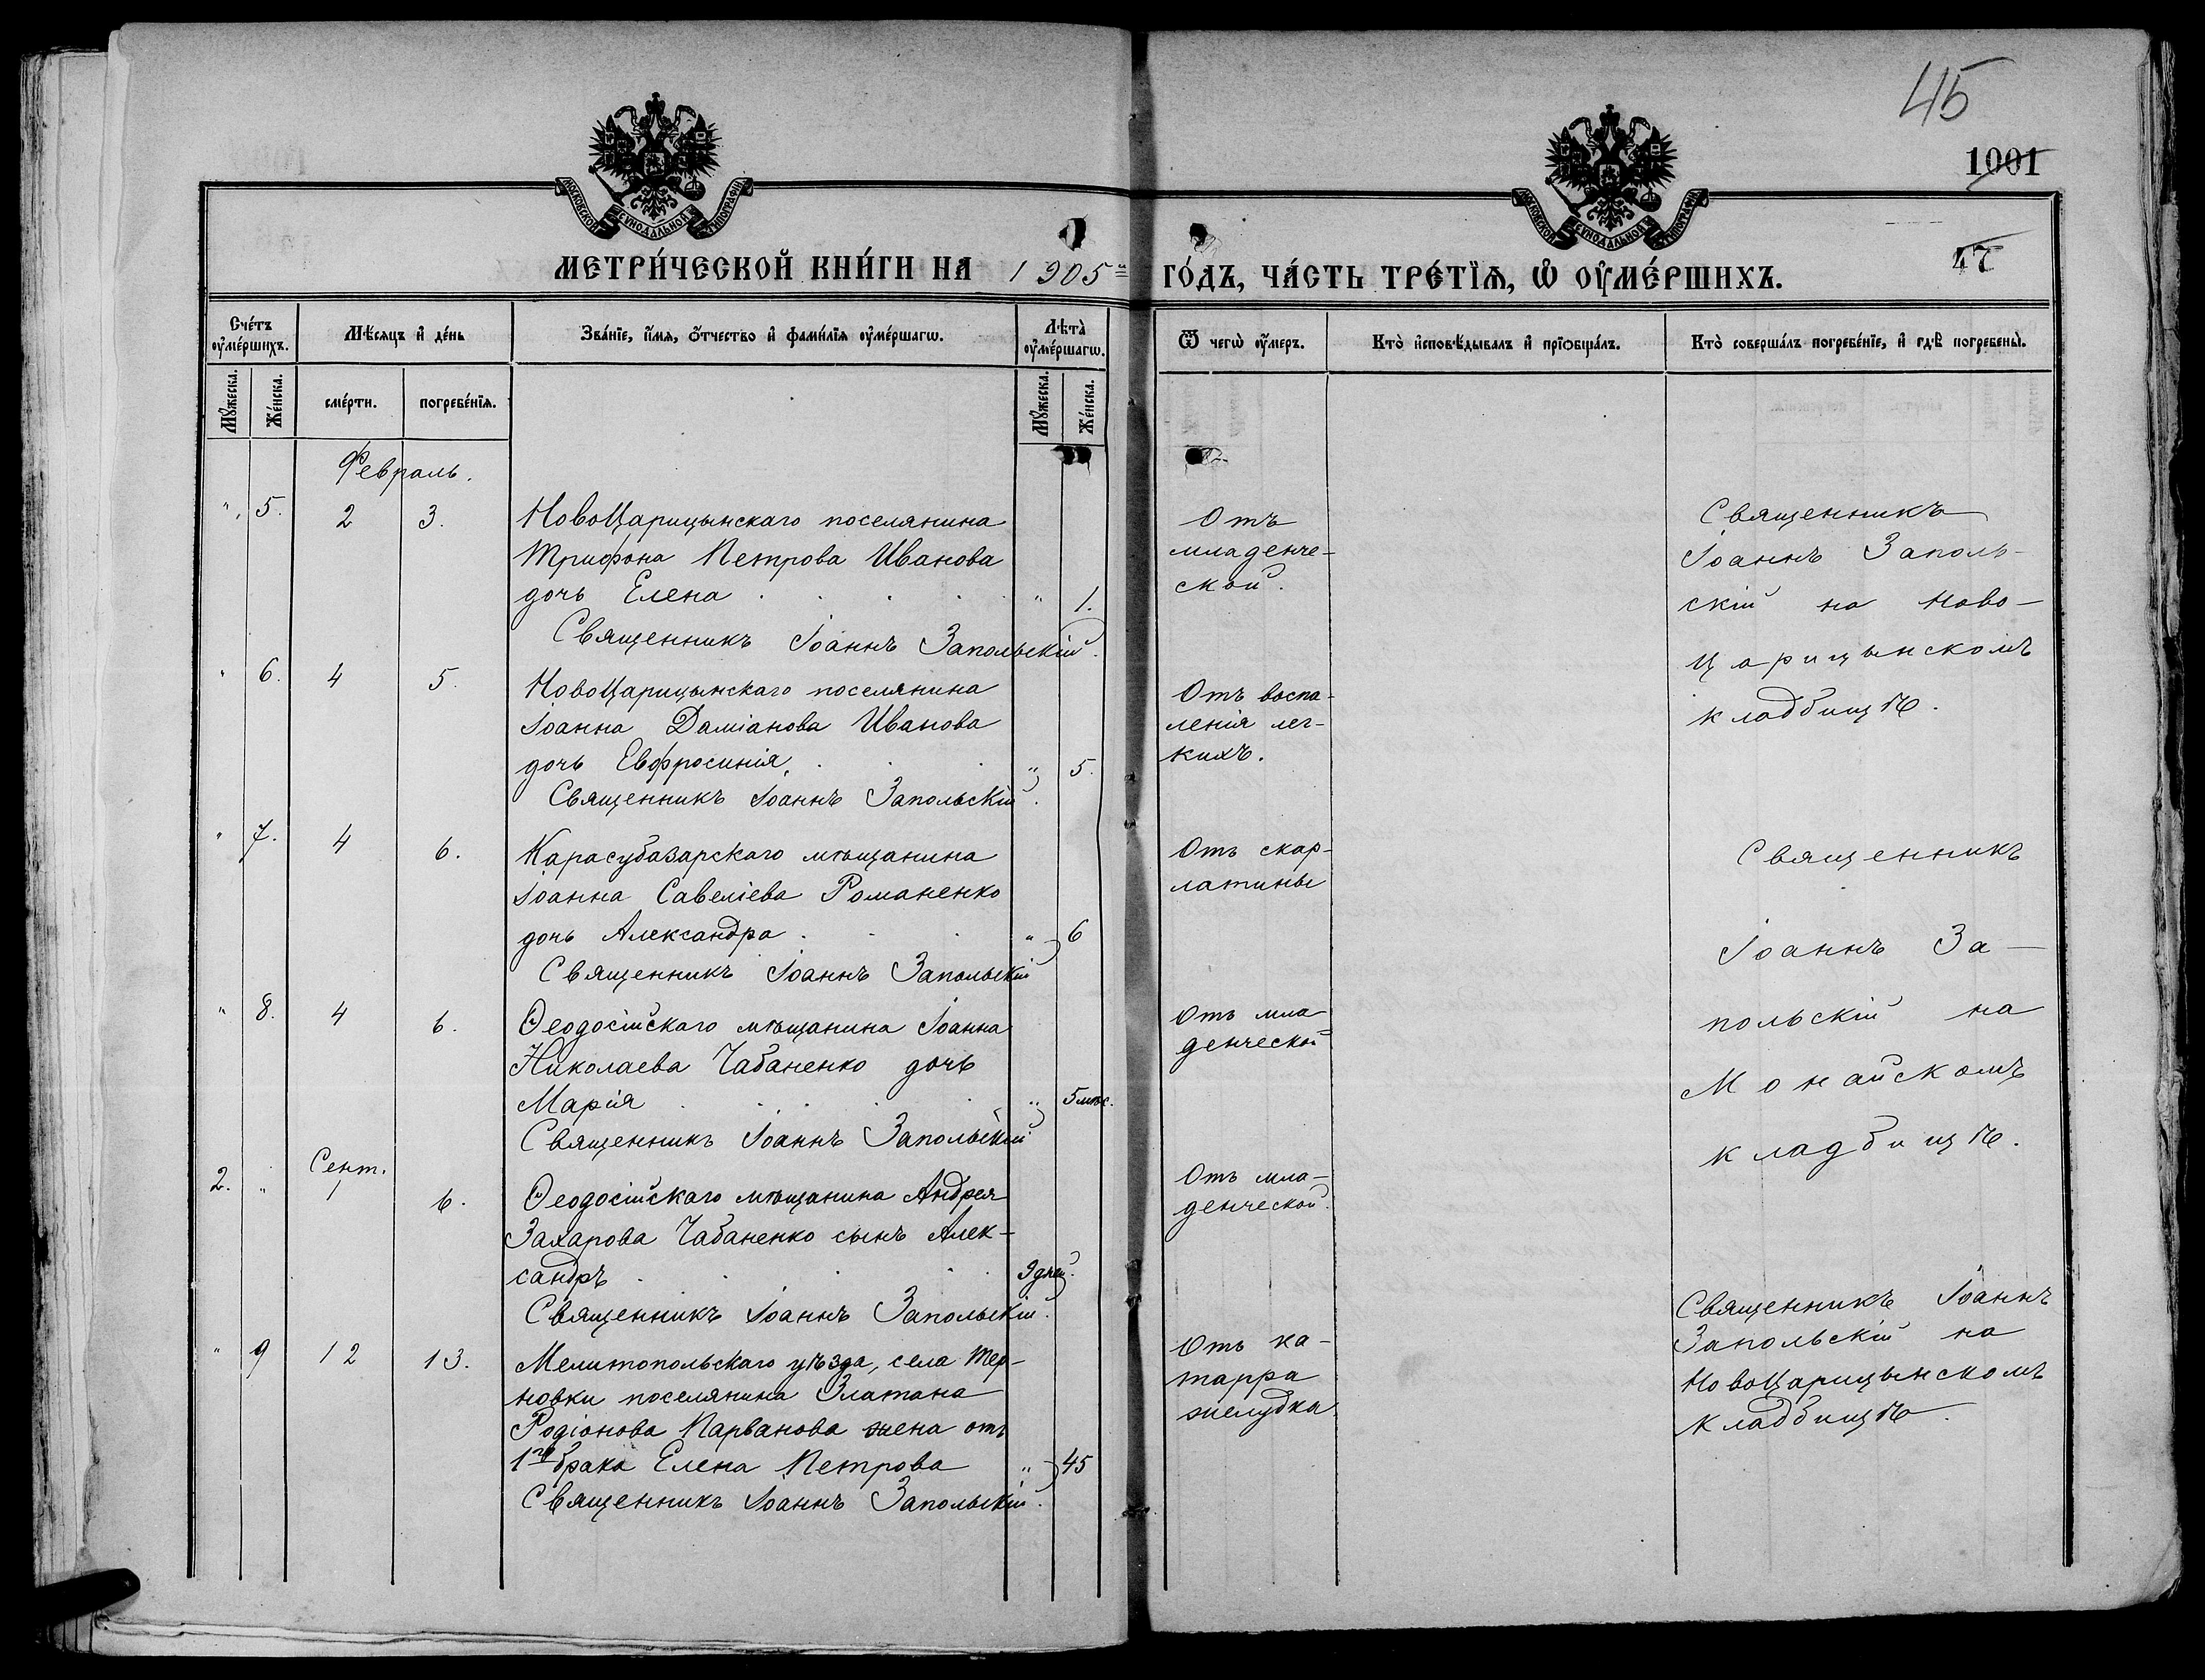 45
1001
47
МОСКОВСКОЙ СѴНОДАЛЬНОЙ ТИПОГРАФІИ
МОСКОВСКОЙ СѴНОДАЛЬНОЙ ТИПОГРАФІИ
МЕТРИ́ЧЕСКОЙ КНИ́ГИ НА 1905й ГО́ДЪ, ЧА́СТЬ ТРЕ́ТІѦ, Ѡ ОУ҆МЕ́РШИХЪ.
Сче́тъ оу҆ме́ршихъ.
Мꙋжеска.
Же́нска.
Мѣ́сяцъ и҆ де́нь
сме́рти.
погребе́нїѧ.
Зва́нїе, и҆́мѧ, ѻ҆́тчество и҆ фами́лїѧ оу҆ме́ршагѡ.
Лѣ́та оу҆ме́ршагѡ.
Мꙋжеска.
Же́нска.
Ѿ чегѡ̀ оу҆́меръ.
Кто̀ и҆сповѣ́дывалъ и҆ прїѻбща́лъ.
Кто̀ соверша́лъ погребе́нїе, и҆ гдѣ̀ погребены̀.
Февраль.
" 5. 2 3.
НовоЦарицынскаго поселянина
Трифона Петрова Иванова
дочь Елена . . . . " 1.
Священникъ Іоаннъ Запольскій.
Отъ
младенче-
ской.
Священникъ
Іоаннъ Заполь-
скій на Ново-
царицынскомъ
кладбищѣ.
" 6. 4 5.
НовоЦарицынскаго поселянина
Іоанна Даміанова Иванова
дочь Евфросинія . . " 5.
Священникъ Іоаннъ Запольскій.
Отъ воспа-
ленія лег-
кихъ.
" 7. 4 6.
Карасубазарскаго мѣщанина
Іоанна Савеліева Романенко
дочь Александра . . . " 6
Священникъ Іоаннъ Запольскій
Отъ скар-
латины
Священникъ
Іоаннъ За-
польскій на
Монайскомъ
кладбищѣ.
" 8. 4 6.
Ѳеодосійскаго мѣщанина Іоанна
Николаева Чабаненко дочь
Марія . . . . . " 5 мѣс.
Священникъ Іоаннъ Запольскій
Отъ мла-
денческой
Сент.
2. " 1 6.
Ѳеодосійскаго мѣщанина Андрея
Захарова Чабаненко сынъ Алек-
сандръ . . . . . 9 дней.
Священникъ Іоаннъ Запольскій.
Отъ мла-
денческой.
" 9 12 13.
Мелитопольскаго уѣзда, села Тер-
новки поселянина Златана
Родіонова Парванова жена отъ
1го брака Елена Петрова " 45
Священникъ Іоаннъ Запольскій.
Отъ ка-
тарра
желудка
Священникъ Іоаннъ
Запольскій на
НовоЦарицынскомъ
кладбищѣ.